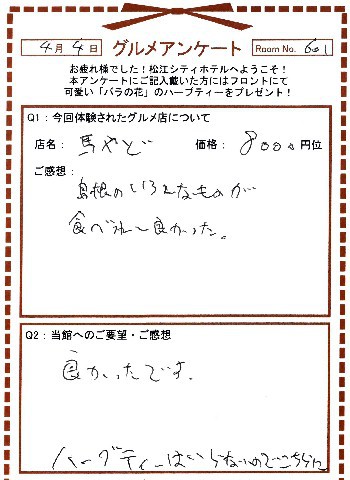 4月4日 グルメアンケート Room No. 601
お疲れ様でした!松江シティホテルへようこそ!
本アンケートにご記入戴いた方にはフロントにて
可愛い「バラの花」のハーブティーをプレゼント!
Q1:今回体験されたグルメ店について
店名: 馬やど 価格: 8000円位
ご感想:
島根のいろんなものが
食べれて良かった。
Q2:当館へのご要望・ご感想
良かったです。
ハーブティーはいらないのでこちらに